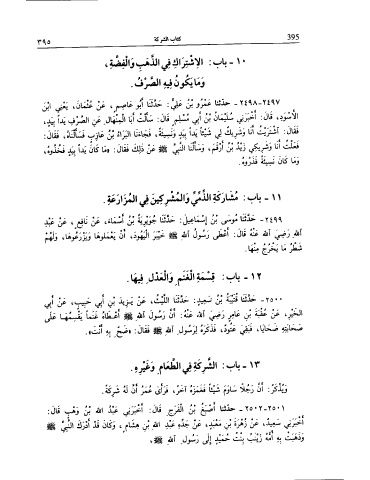 395
كتاب الشركة
٣٩٥
١٠ - باب: الاِشْتِرَاكِ فِي الذَّهَبِ وَالْفِضَّةِ،
وَمَا يَكُونُ فِيهِ الصَّرْفُ.
٢٤٩٧-٢٤٩٨ - حدثنا عَمْرُو بْنُ عَلِيٍّ: حَدَّثَنَا أَبُو عَاصِمٍ، عَنْ عُثْمَانَ، يَعْنِي ابْنَ
الأَسْوَدِ، قَالَ: أَخْبَرَنِي سُلَيْمَانُ بْنُ أَبِي مُسْلِمٍ قَالَ: سَأَلْتُ أَبَا الْمِنْهَالِ عَنِ الصَّرْفِ يَداً بِيَدٍ،
فَقَالَ: اشْتَرَيْتُ أَنَا وَشَرِيكٌ لِي شَيْئاً يَداً بِيَدٍ وَنَسِيئَةً، فَجَاءَنَا الْبَرَاءُ بْنُ عَازِبٍ فَسَأَلْنَاهُ، فَقَالَ:
فَعَلْتُ أَنَا وَشَرِيكِي زَيْدُ بْنُ أَرْقَمَ، وَسَأَلْنَا النَّبِيَّ ﷺ عَنْ ذَلِكَ فَقَالَ: «مَا كَانَ يَداً بِيَدٍ فَخُذُوهُ،
وَمَا كَانَ نَسِيئَةً فَذَرُوهُ.
١١ - باب: مُشَارَكَةِ الذِّمِّيِّ وَالْمُشْرِكِينَ فِي الْمُزَارَعَةِ.
٢٤٩٩ - حَدَّثَنَا مُوسَى بْنُ إِسْمَاعِيلَ: حَدَّثَنَا جُوَيْرِيَةُ بْنُ أَسْمَاءَ، عَنْ نَافِعٍ، عَنْ عَبْدِ
اللهِ رَضِيَ اللهُ عَنْهُ قَالَ: أَعْطَى رَسُولُ اللهِ ﷺ خَيْبَرَ الْيَهُودَ، أَنْ يَعْمَلُوهَا وَيَزْرَعُوهَا، وَلَهُمْ
شَطْرُ مَا يَخْرُجُ مِنْهَا.
١٢ - باب: قِسْمَةِ الْغَنَمِ وَالْعَدْلِ فِيهَا.
٢٥٠٠ - حَدَّثَنَا قُتَيْبَةُ بْنُ سَعِيدٍ: حَدَّثَنَا اللَّيْثُ، عَنْ يَزِيدَ بْنِ أَبِي حَبِيبٍ، عَنْ أَبِي
الْخَيْرِ، عَنْ عُقْبَةَ بْنِ عَامِرٍ رَضِيَ اللهُ عَنْهُ: أَنَّ رَسُولَ اللهِ ﷺ أَعْطَاهُ غَنَماً يَقْسِمُهَا عَلَى
صَحَابَتِهِ ضَحَايَا، فَبَقِيَ عَتُودٌ، فَذَكَرَهُ لِرَسُولِ اللهِ ﷺ فَقَالَ: «ضَحِّ بِهِ أَنْتَ».
١٣ - باب: الشَّرِكَةِ فِي الطَّعَامِ وَغَيْرِهِ.
وَيُذْكَرُ: أَنَّ رَجُلاً سَاوَمَ شَيْئاً فَغَمَزَهُ آخَرُ، فَرَأَى عُمَرُ أَنَّ لَهُ شَرِكَةً.
٢٥٠١-٢٥٠٢ - حدثنا أَصْبَغُ بْنُ الْفَرَجِ قَالَ: أَخْبَرَنِي عَبْدُ اللهِ بْنُ وَهْبٍ قَالَ:
أَخْبَرَنِي سَعِيدٌ، عَنْ زُهْرَةَ بْنِ مَعْبَدٍ، عَنْ جَدِّهِ عَبْدِ اللهِ بْنِ هِشَامٍ، وَكَانَ قَدْ أَدْرَكَ النَّبِيَّ ﷺ
وَذَهَبَتْ بِهِ أُمُّهُ زَيْنَبُ بِنْتُ حُمَيْدٍ إِلَى رَسُولِ اللهِ ﷺ،